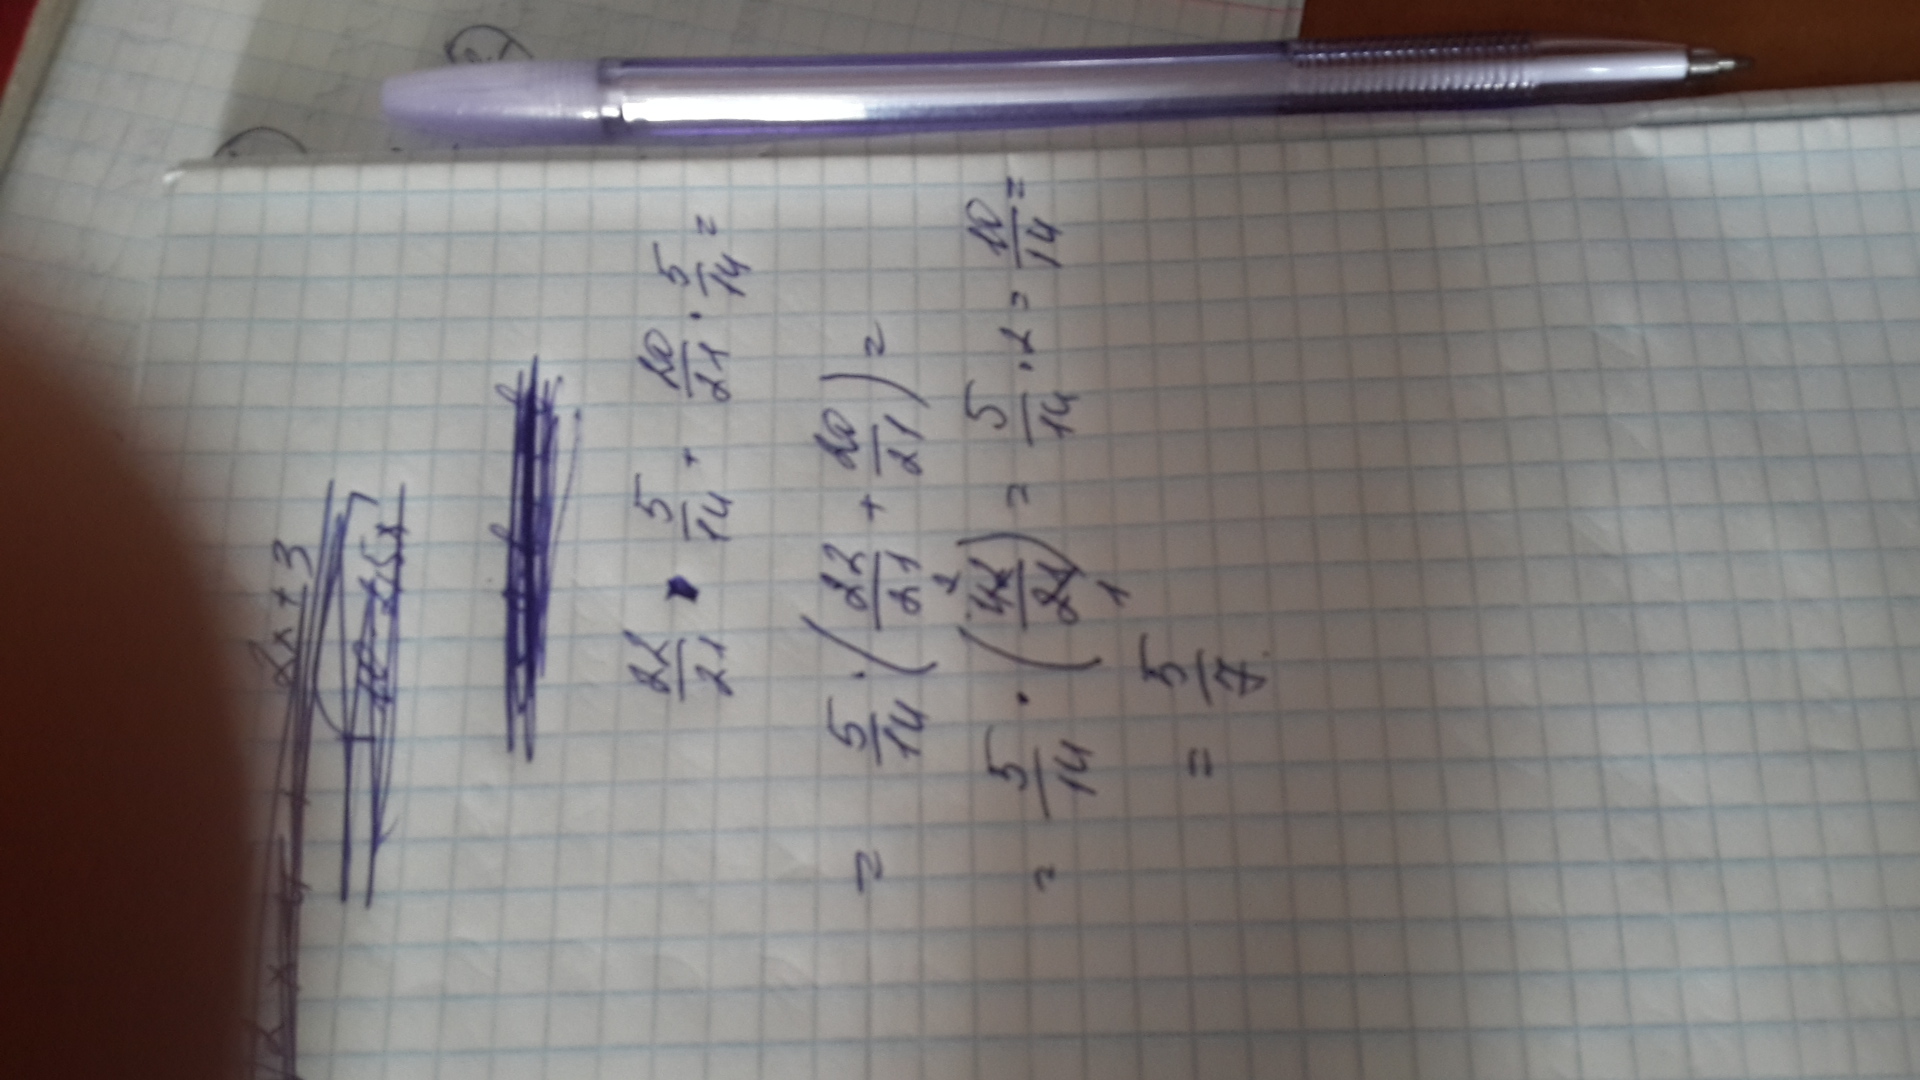 2x+3
22/21 · 5/14 + 20/21 · 5/14 =
= 5/14 · (22/21 + 20/21) =
= 5/14 · (42/21) = 5/14 · 2 = 10/14 =
2
1
= 5/7.